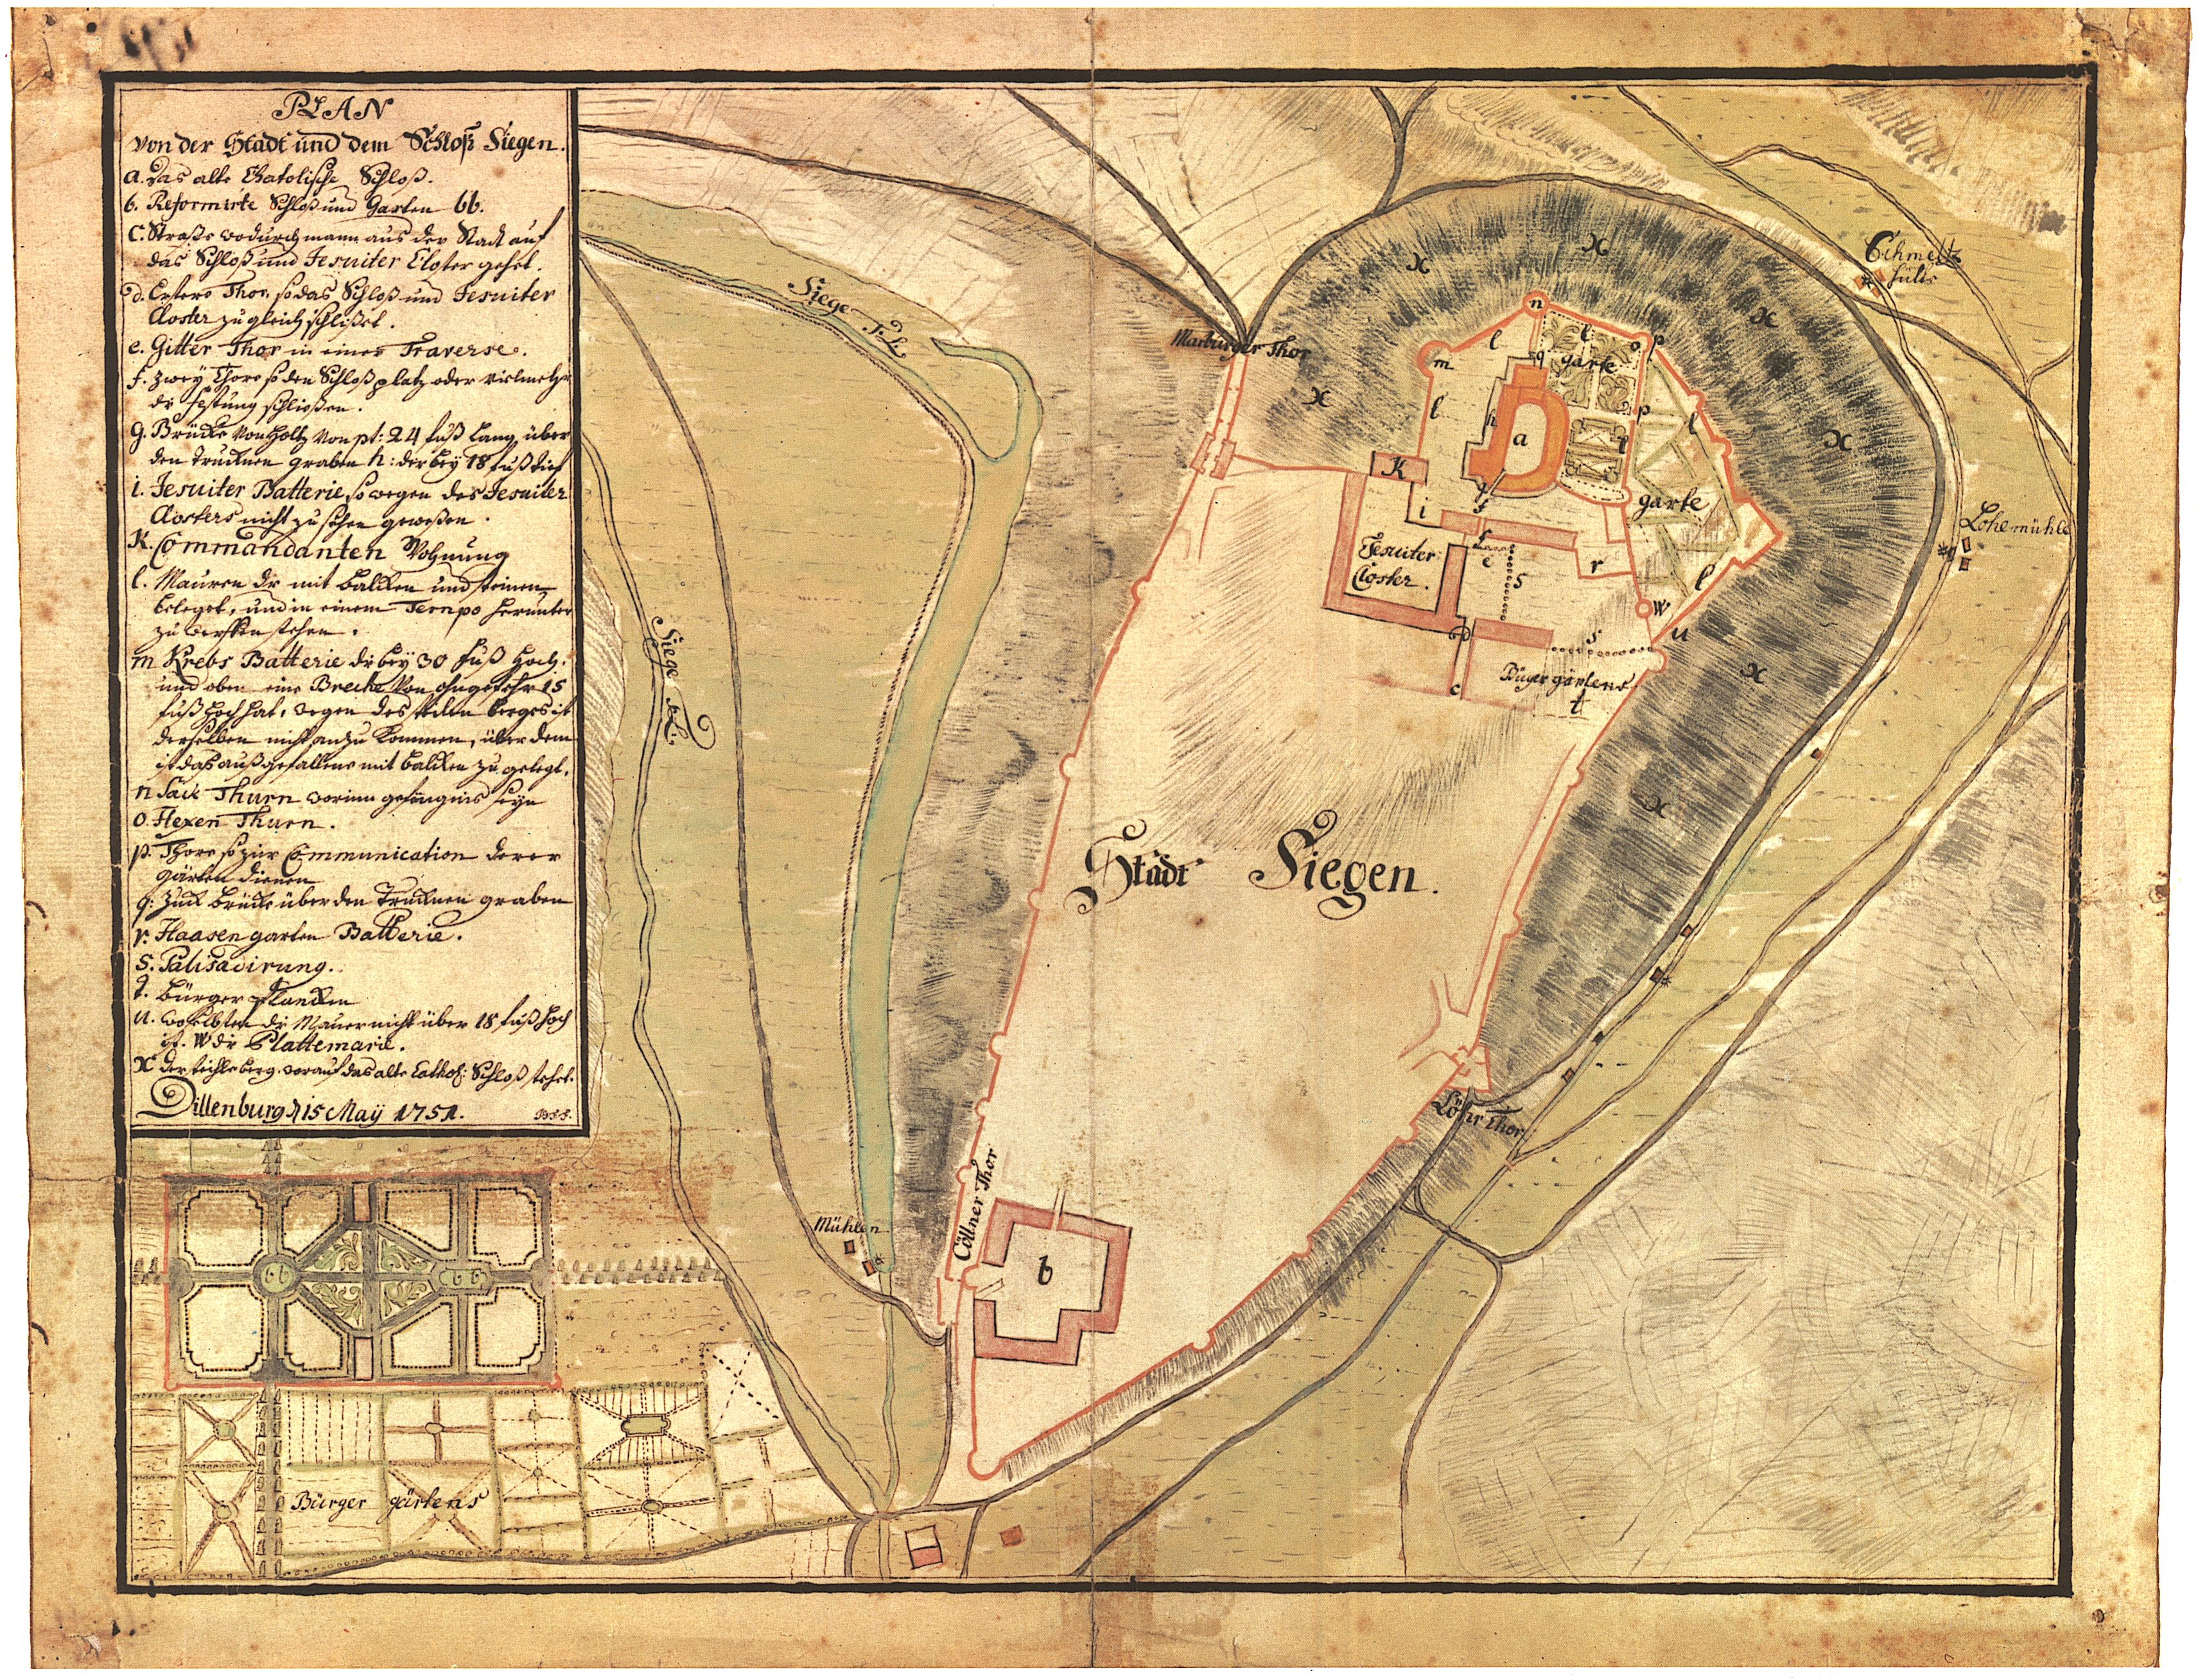 PLAN
von der Stadt und dem Schloß Siegen.
a. Das alte Chatolische Schloß.
b. Reformirte Schloß und Garten bb.
C. Straße wodurch mann aus der Stadt auf
das Schloß und Jesuiter Closter gehet.
d. Erstere Thor, so das Schloß und Jesuiter
Closter zugleich schlißet.
e. Gitter Thor in einer Traverse.
f. zwey Thore so den Schloßplatz oder vielmehr
die festung schließen.
g. Brücke von Holtz von pt: 24 fuß lang über
den trucknen graben h: der bey 18 fuß tief
i. Jesuiter Batterie, so wegen des Jesuiter
Closters nicht zu sehen geweßen.
K. Commandanten Wohnung
l. Mauren die mit balcken und steinen
beleget, und in einem Tempo herunter
zu werffen stehen.
m Krebs Batterie die bey 30 fuß hoch,
und oben eine Breche von ohngefehr 15
fuß hoch hat, wegen des steilen berges ist
derselben nicht anzu kommen, über dem
ist das außgefallene mit balcken zu gelegt.
n Sack Thurn worinn gefängnis seyn
o. Hexen Thurn.
p. Thore so zur Communication derer
gärten dienen
q. Zuck brücke über den Trucknen graben
r. Haasen garten Batterie.
S. Palisadirung.
t. bürger plancken
u. woselbsten die Mauer nicht über 18 fuß hoch
ist. W die Plattemarie.
X der berg worauf das alte Cathol: Schloß stehet.
Dillenburg d 15 May 1751.
Siege Fl.
Siege Fl.
Marburger Thor
Schmeltz
hütte
Lohe mühle
n
m
l
l
l
q
o
p
garte
h
a
p
l
l
K
q
f
garte
i
Jesuiter
Closter.
f
e
r
S
l
W
u
d
s
c
Bürger gärtens
t
X
X
X
X
X
X
X
Stadt Siegen.
Löhr Thor
Mühlen
Cöllner Thor
b
bb
bb
Bürger gärtens